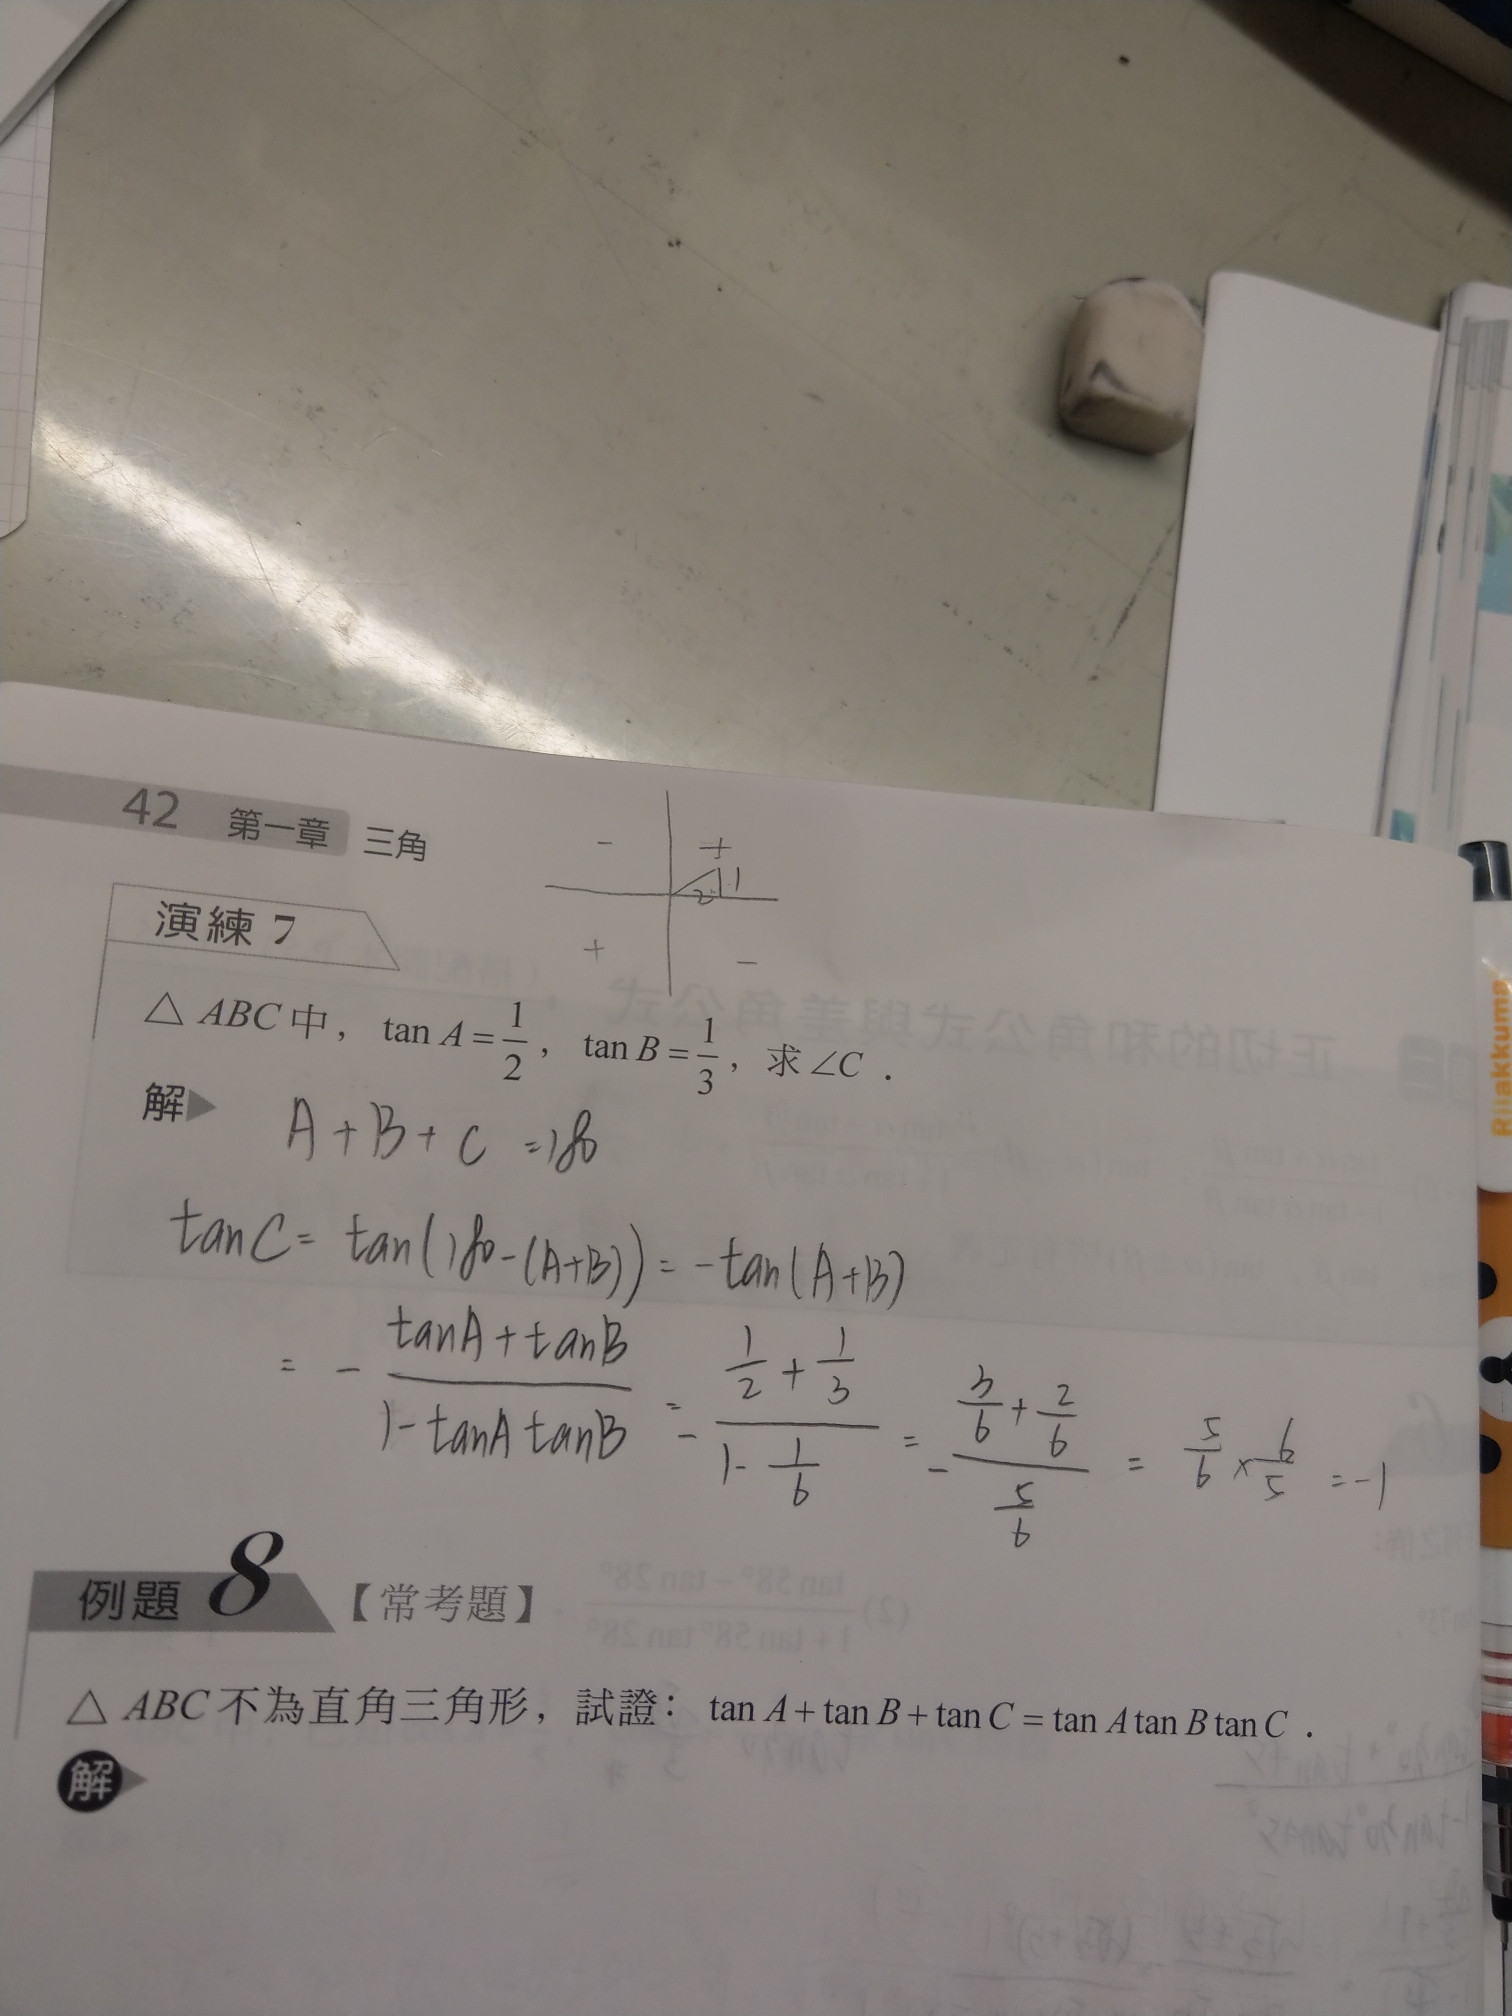 42 第一章 三角
- +
1
2
+ -
演練 7
△ ABC 中， tan A = 1/2 ， tan B = 1/3 ，求 ∠C ．
解
A + B + C = 180
tan C = tan(180 - (A+B)) = - tan(A+B)
= - (tanA + tanB)/(1 - tanA tanB) = - (1/2 + 1/3)/(1 - 1/6) = - (3/6 + 2/6)/(5/6) = 5/6 × 6/5 = -1
例題 8 【常考題】
△ ABC 不為直角三角形，試證： tan A + tan B + tan C = tan A tan B tan C ．
解
Rilakkuma